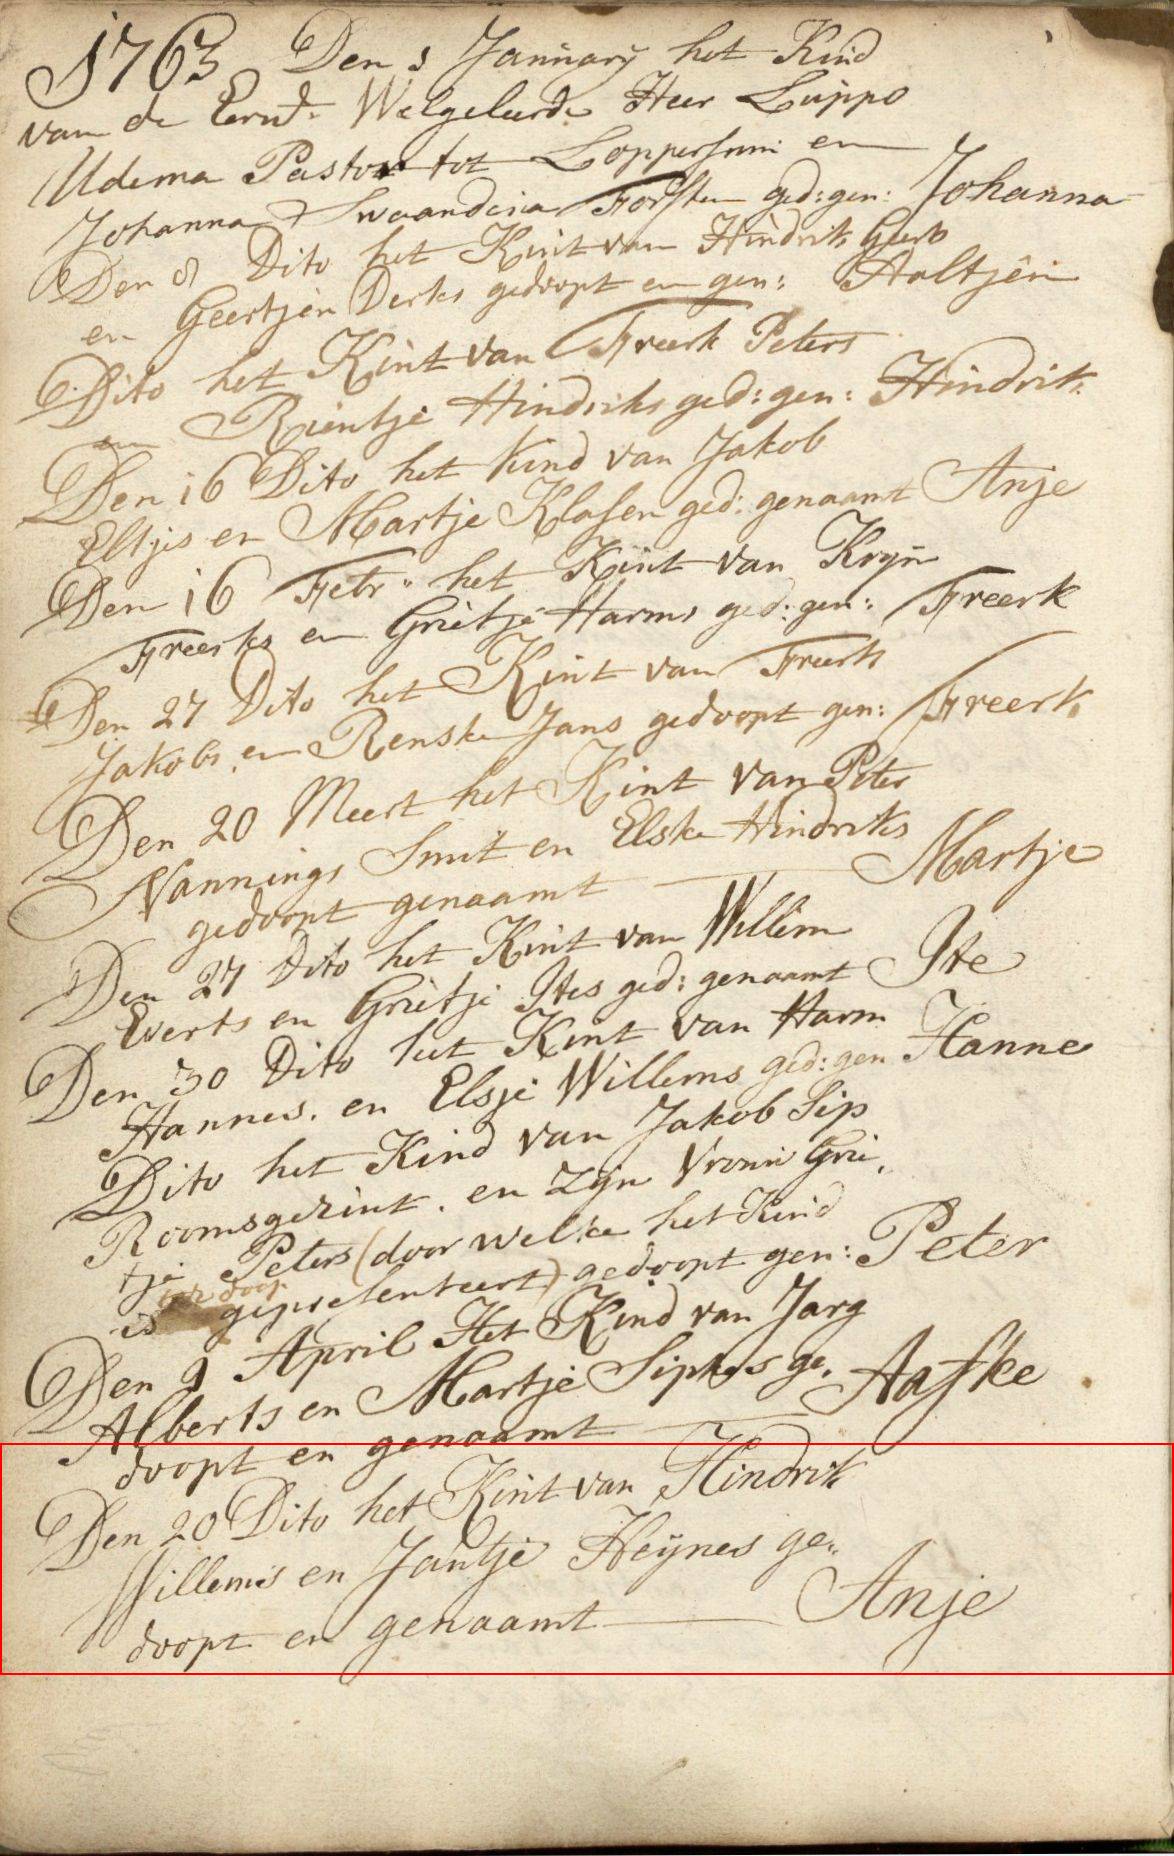 1763 Den 1 January het Kind
van de Eerwd. Welgeleerde Heer Luppo
Udema Pastor tot Loppersum en
Johanna Swaandina Forsten ged: gen: Johanna
Den 8 Dito het Kint van Hindrik Geerts
en Geertjen Derks gedoopt en gen: Aaltjen
Dito het Kint van Freerk Peters
en Rientje Hindriks ged: gen: Hindrik
Den 16 Dito het Kind van Jakob
Eltjes en Martje Klasen ged: genaamt Anje
Den 16 Febr. het Kint van Kryn
Freerks en Grietje Harms ged: gen: Freerk
Den 27 Dito het Kint van Freerk
Jakobs en Renske Jans gedoopt gen: Freerk
Den 20 Meert het Kint van Peter
Nannings Smit en Elske Hindriks
gedoopt genaamt Martje
Den 27 Dito het Kint van Willem
Everts en Grietje Ites ged: genaamt Ite
Den 30 Dito het Kint van Harm
Hannes. en Elsje Willems ged: gen Hanne
Dito het Kind van Jakob Sip
Roomsgezint. en Zyn Vrouw Grie,
tje Peters (door welke het Kind
ter doop
is gepresenteert) gedoopt gen: Peter
Den 9 April Het Kind van Jarg
Alberts en Martje Sipkes ge,
doopt en genaamt Aafke
Den 20 Dito het Kint van Hindrik
Willems en Jantje Heijnes ge,
doopt en genaamt Anje